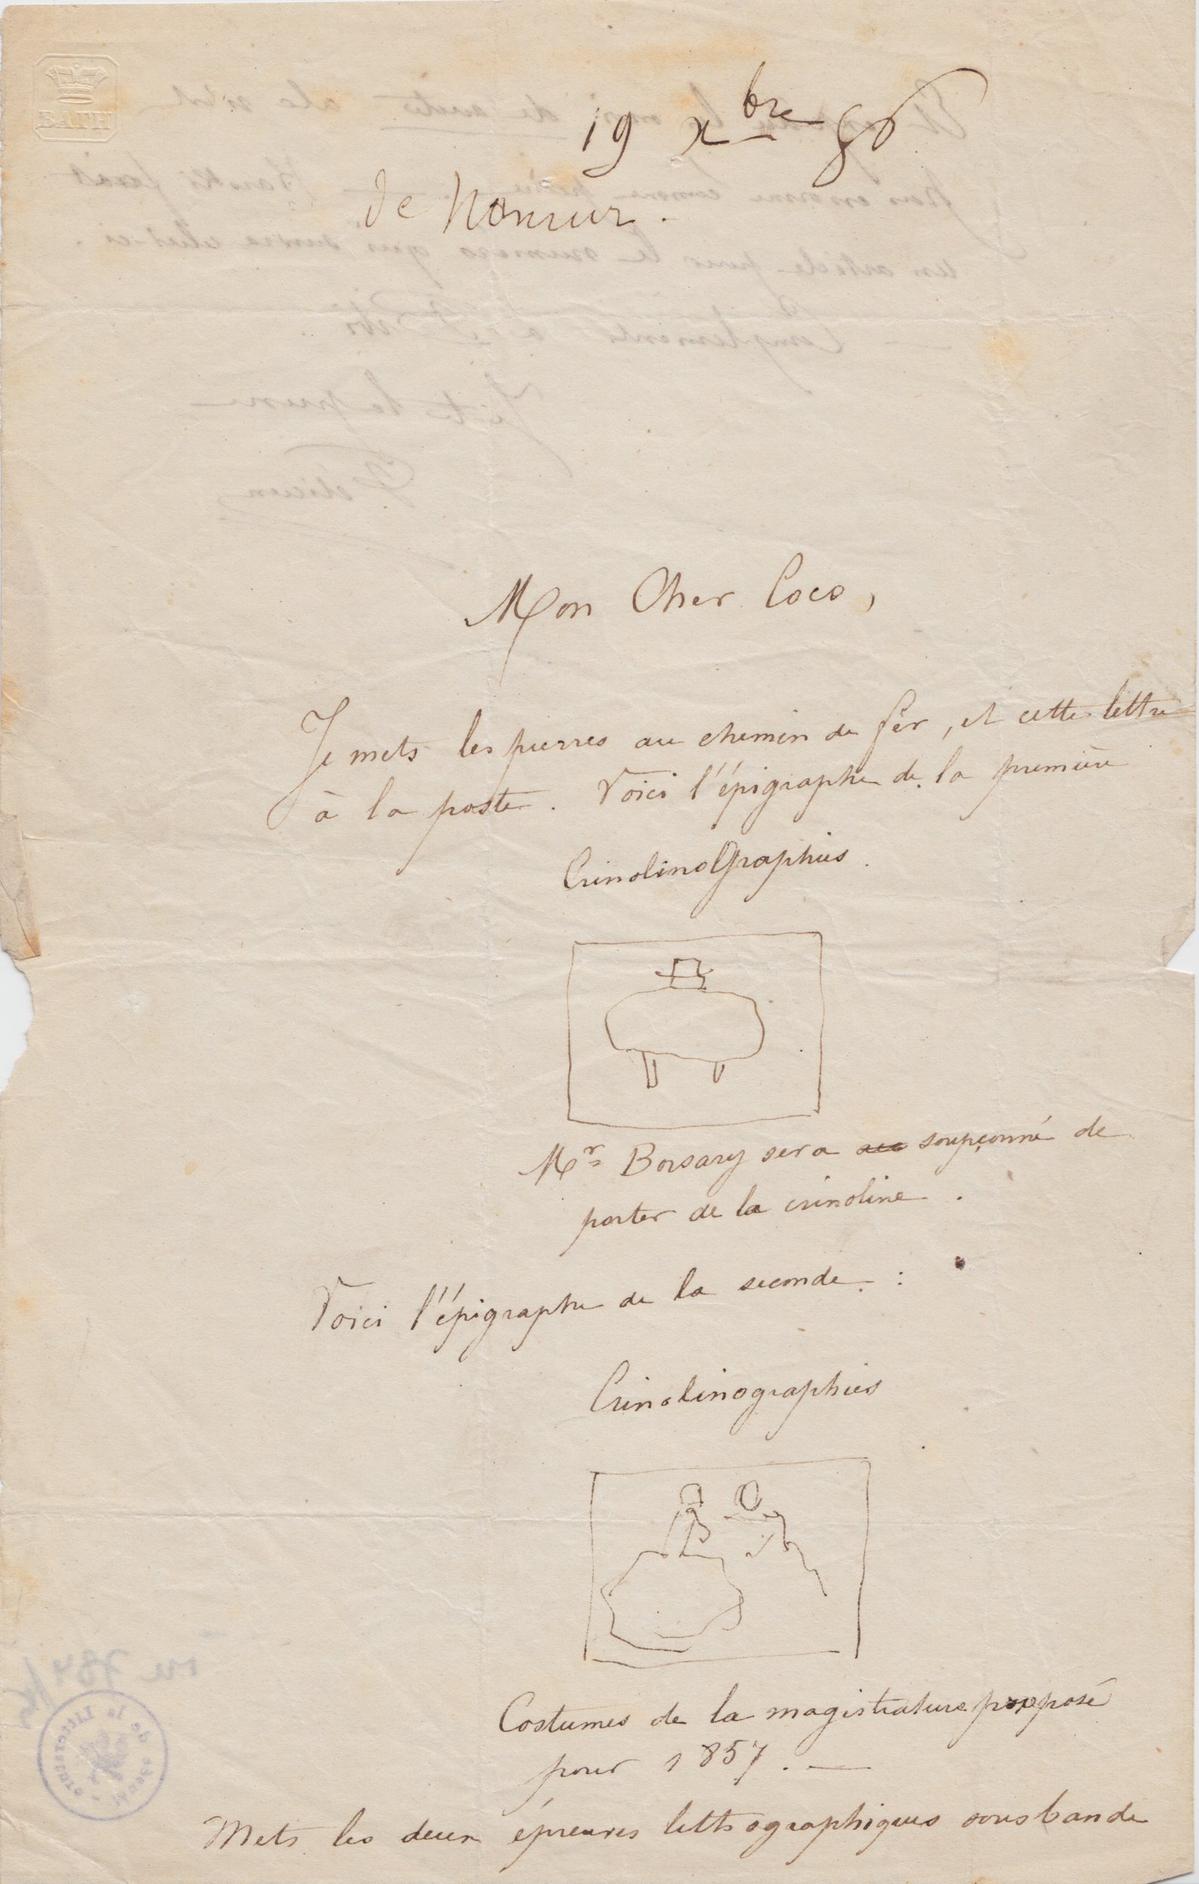 BATH
19 Xbre 56
de Namur.
Mon Cher Coco,
Je mets les pierres au chemin de fer, et cette lettre
à la poste. Voici l'épigraphe de la première
CrinolinoGraphies.
Mr Borsary sera soupçonné de
porter de la crinoline.
Voici l'épigraphe de la seconde :
Crinolinographies
Costumes de la magistrature proposé
pour 1857. —
Mets les deux épreuves lithographiques sous bande